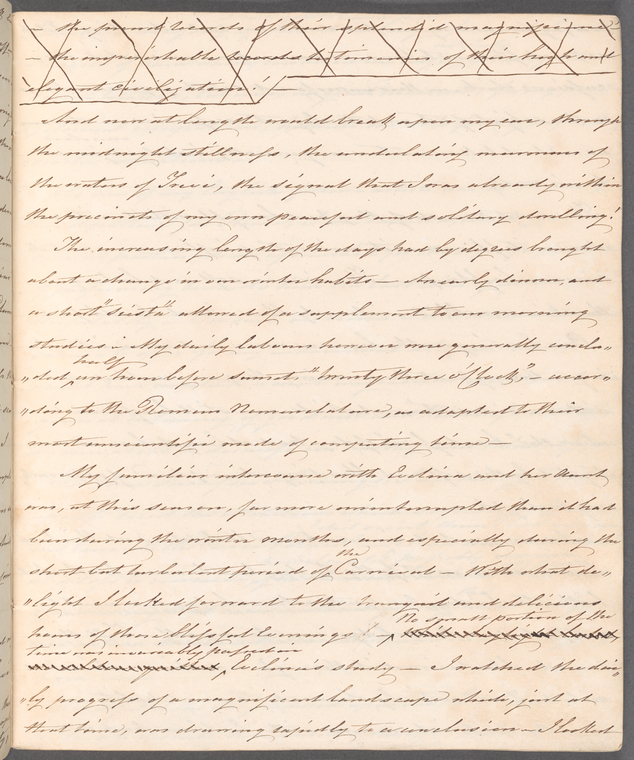 – the proud records of their splendid magnificence
– the imperishable records testimonies of their high and
elegant civilization! –
And now at length would break upon my ear, through
the midnight stillness, the undulating murmurs of
the waters of Trevi, the signal that I was already within
the precincts of my own peaceful and solitary dwelling!
The increasing length of the days had by degrees brought
about a change in our winter habits – An early dinner, and
a short "siesta" allowed of a supplement to our morning
studies – My daily labours however were generally conclu„
„ded, half an hour before sunset. "twenty three o'Clock," – accor„
„ding to the Roman Nomenclature, as adapted to their
most unscientific mode of computing time –
My familiar intercourse with Evelina and her Aunt
was, at this season, far more uninterrupted than it had
been during the winter months, and especially during the
the
short but turbulent period of Carnival – With what de„
„light I looked forward to the tranquil and delicious
No small portion of the
hours of those blissful Evenings! –
time was invariably passed in
Evelina's study – I watched the dai„
„ly progress of a magnificent landscape which, just at
that time, was drawing rapidly to a conclusion – I looked